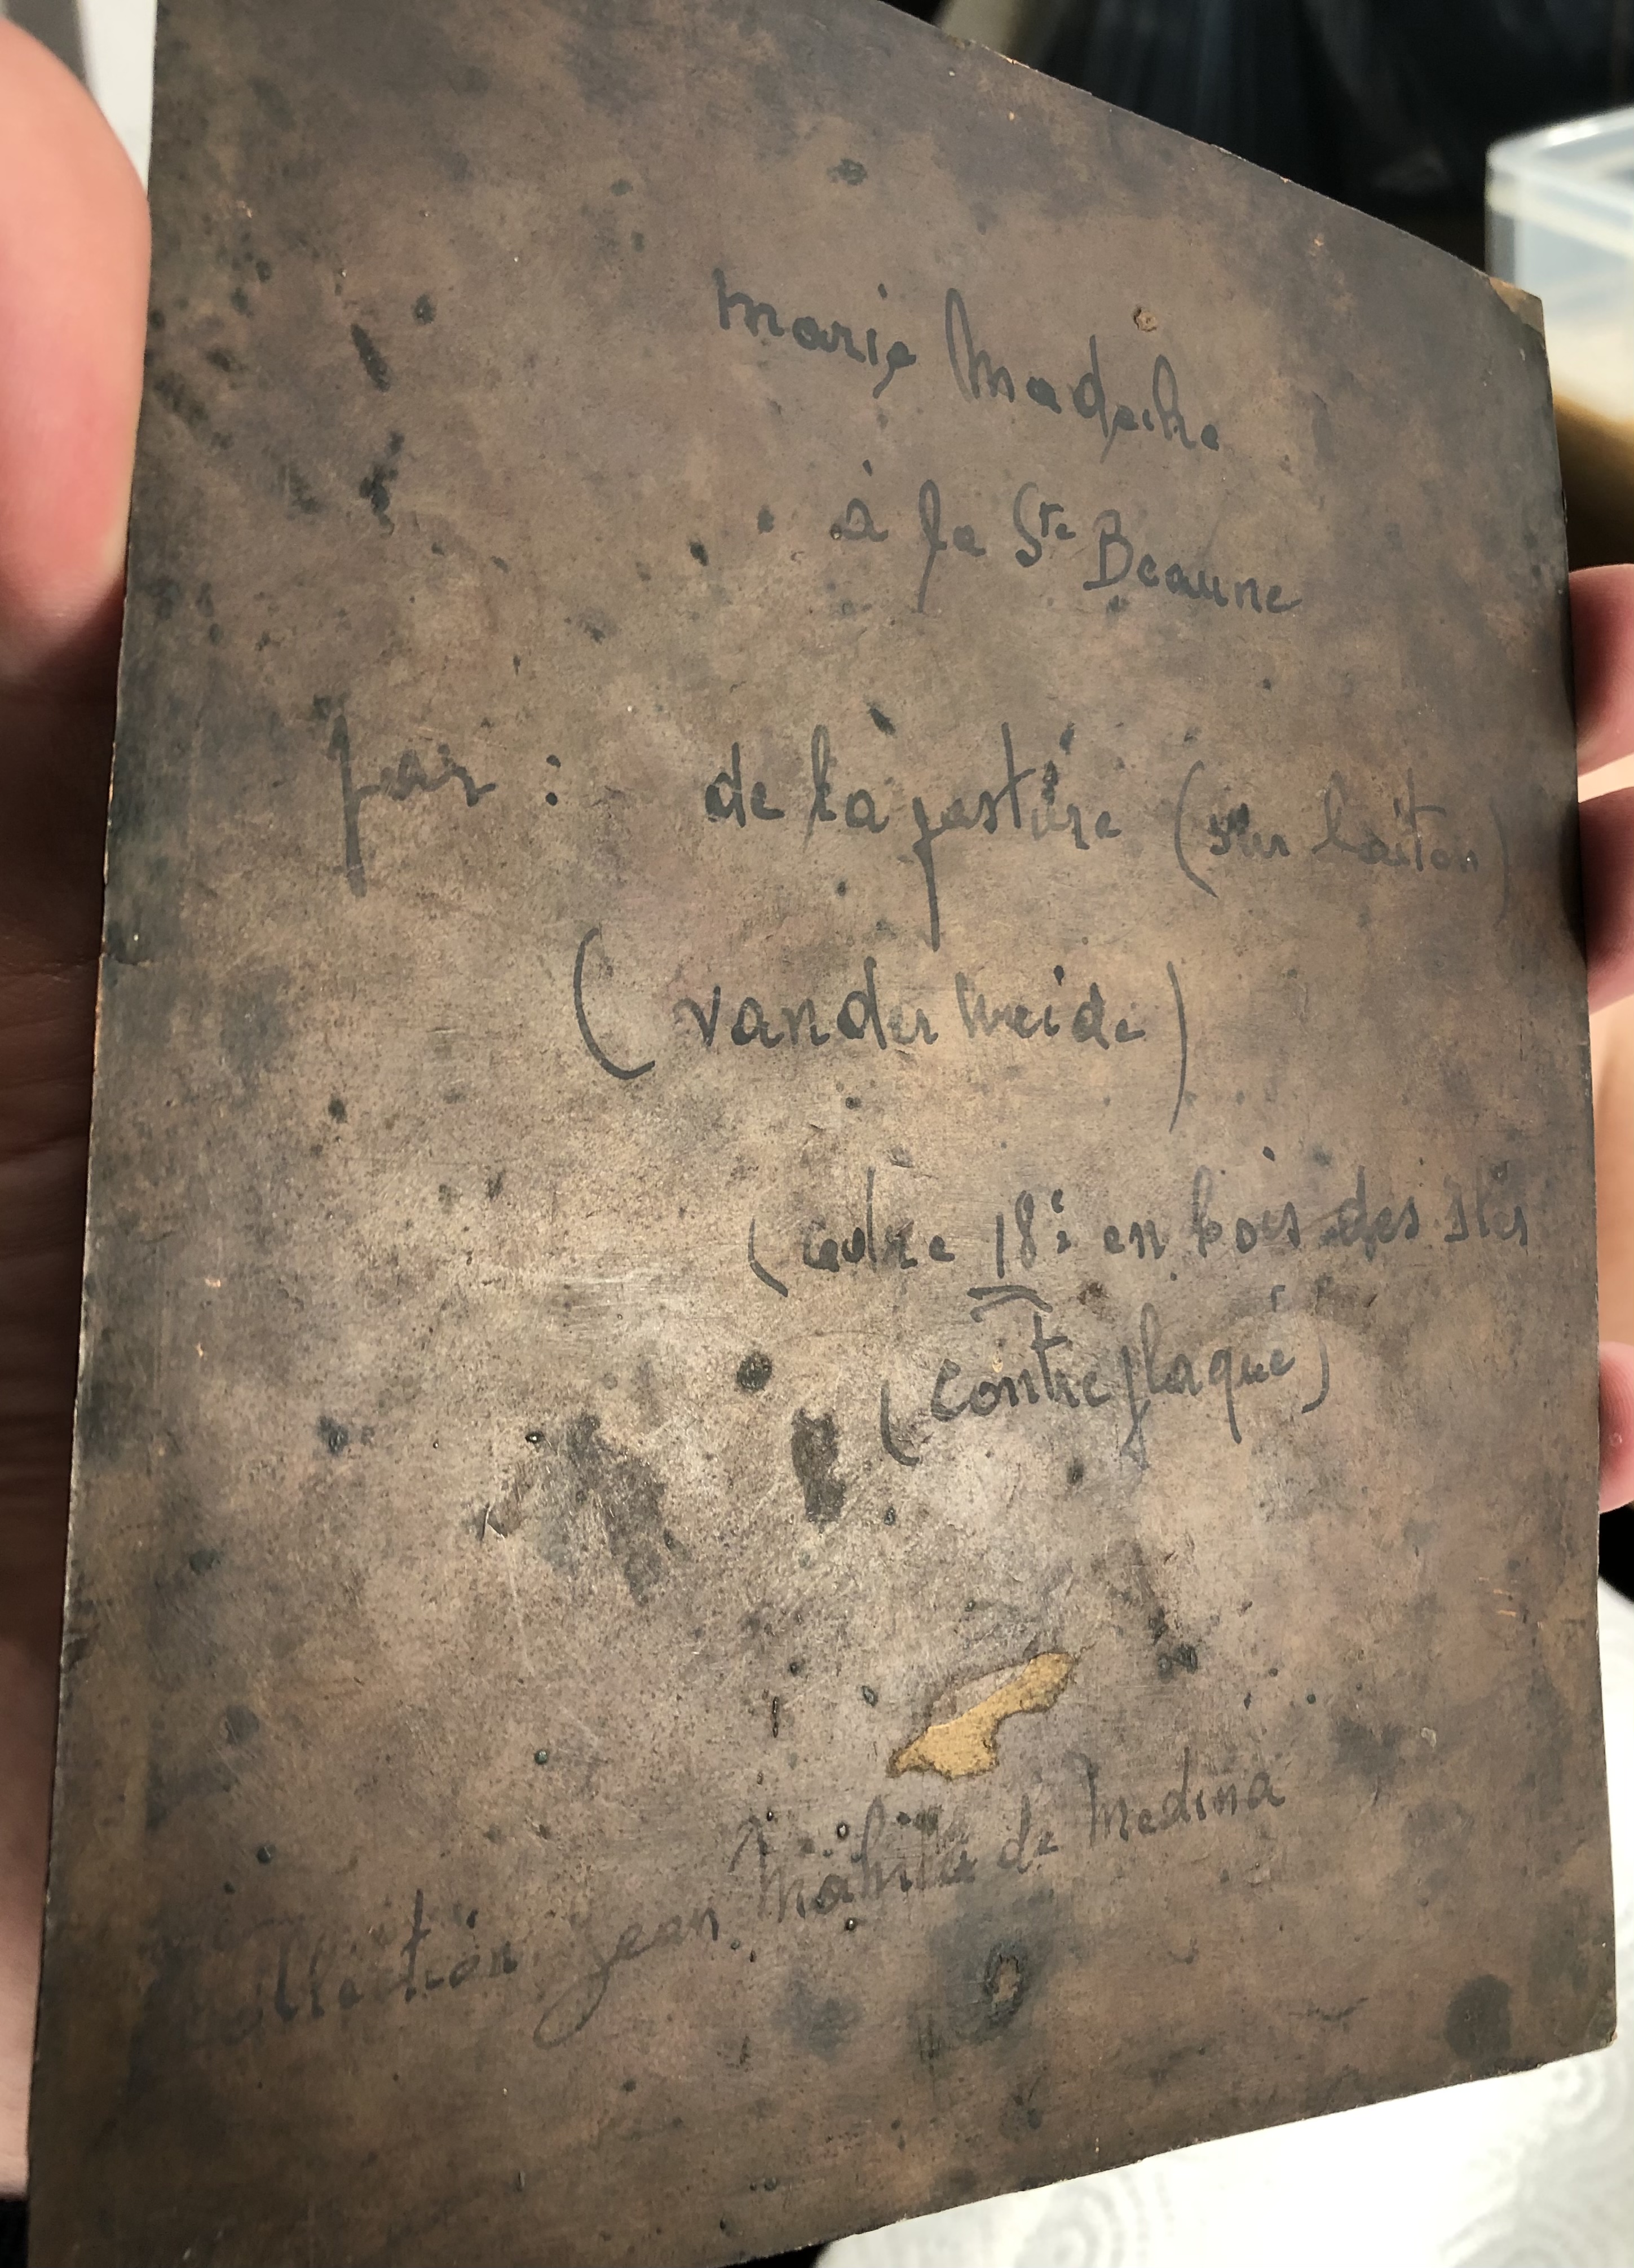 Marie Madeleine
à la Ste Beaune
par : de la pasture (sur laiton)
(vander Weide)
(cadre 18è en bois des iles
(contre plaqué)
collection Jean de Medina